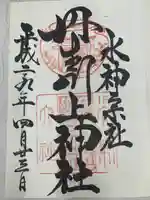 水神宗社
丹生川上神社
平成二九年四月廿三日